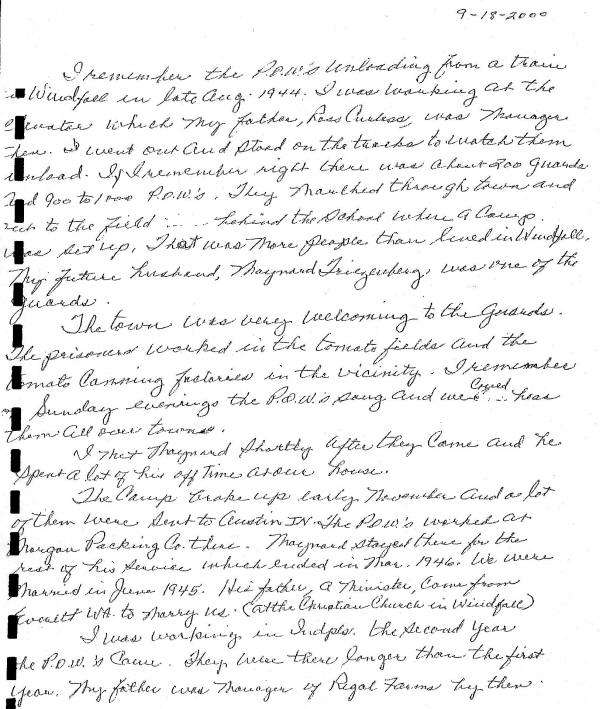 9-18-2000
I remember the P.O.W's unloading from a train
in Windfall in late Aug. 1944. I was working at the
elevator which my father, Ross Curless, was Manager
then. I went out and stood on the tracks to watch them
unload. If I remember right there was about 200 guards
and 900 to 1000 P.O.W's. They marched through town and
out to the field .... behind the School where a Camp
was set up. That was more people than lived in Windfall.
My future husband, Maynard Triezenberg, was one of the
guards.
The town was very welcoming to the Guards.
The prisoners worked in the tomato fields and the
tomato Canning factories in the vicinity. I remember
Sunday evenings the P.O.W's sang and we could ... hear
them all over town.
I met Maynard shortly after they came and he
spent a lot of his off time at our house.
The Camp broke up early November and a lot
of them were sent to Austin IN. The P.O.W's worked at
Morgan Packing Co. there. Maynard stayed there for the
rest of his service which ended in Mar. 1946. We were
married in June 1945. His father, a Minister, came from
Everett WA. to marry us. (at the Christian Church in Windfall)
I was working in Indpls. the second year
the P.O.W.'s came. They were there longer than the first
year. My father was Manager of Regal Farms by then.